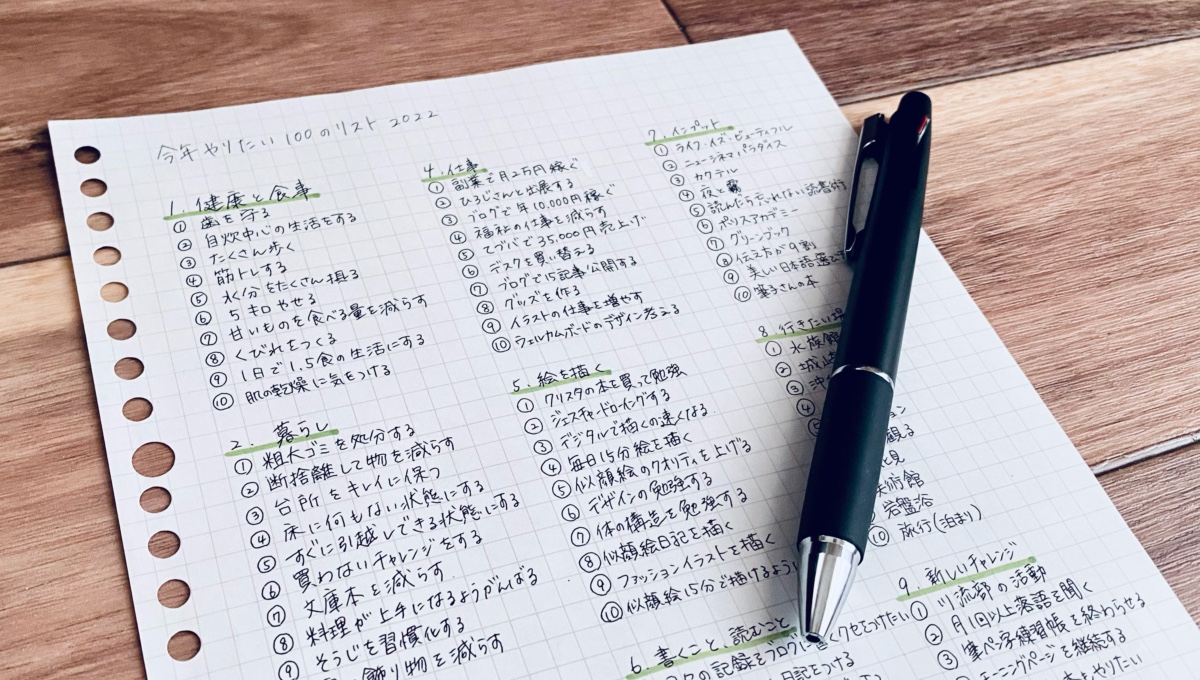 今年やりたい100のリスト 2022
1. 健康と食事
① 歯を守る
② 自炊中心の生活をする
③ たくさん歩く
④ 筋トレする
⑤ 水分をたくさん摂る
⑥ 5キロやせる
⑦ 甘いものを食べる量を減らす
⑧ くびれをつくる
⑨ 1日で1.5食の生活にする
⑩ 肌の乾燥に気をつける
2. 暮らし
① 粗大ゴミを処分する
② 断捨離して物を減らす
③ 台所をキレイに保つ
④ 床に何もない状態にする
⑤ すぐに引越しできる状態にする
⑥ 買わないチャレンジをする
⑦ 文庫本を減らす
⑧ 料理が上手になるようがんばる
⑨ そうじを習慣化する
飾り物を減らす
4. 仕事
① 副業で月2万円稼ぐ
② ひろじさんと出展する
③ ブログで年10,000円稼ぐ
④ 福祉の仕事を減らす
⑤ てづバで35,000円売上げ
⑥ デスクを買い替える
⑦ ブログで15記事公開する
⑧ グッズを作る
⑨ イラストの仕事を増やす
⑩ ウェルカムボードのデザイン考える
5. 絵を描く
① クリスタの本を買って勉強
② ジェスチャードローイングする
③ デジタルで描くの速くなる
④ 毎日15分絵を描く
⑤ 似顔絵のクオリティを上げる
⑥ デザインの勉強する
⑦ 体の構造を勉強する
⑧ 似顔絵日記を描く
⑨ ファッションイラストを描く
⑩ 似顔絵15分で描けるよう
6. 書くこと、読むこと
の記録をブログに書くクセをつけたい
日記をつける
7. インプット
① ライフ・イズ・ビューティフル
② ニューシネマパラダイス
③ カクテル
④ 夜と霧
⑤ 読んだら忘れない読書術
⑥ ポリスアカデミー
⑦ グリーンブック
⑧ 伝え方が9割
⑨ 美しい日本語選び
⑩ 葉子さんの本
8. 行きたい場
① 水族館
② 城崎
③ 沖
④
⑤ ョン
観る
見
美術館
岩盤浴
⑩ 旅行(泊まり)
9. 新しいチャレンジ
① 川流部の活動
② 月1回以上落語を聞く
③ 筆ペン字練習帳を終わらせる
モーニングページを継続する
もやりたい